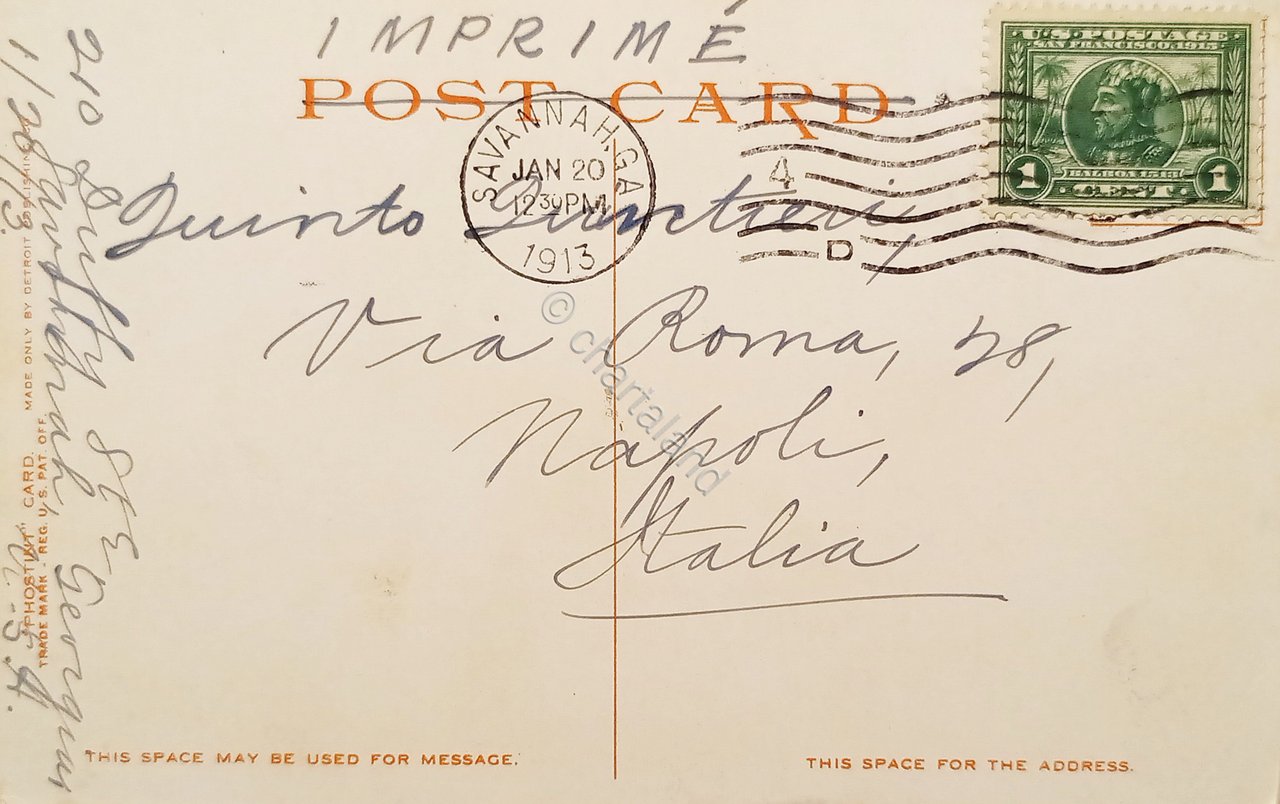 IMPRIMÉ
POST CARD
U.S. POSTAGE
SAN FRANCISCO 1915
BALBOA 1513
1 CENT 1
SAVANNAH, GA
JAN 20
12 30 PM
1913
4
D
Quinto
Via Roma, 28,
Napoli,
Italia
210 St E
Savannah, Georgia
U.S.A.
1/20/13.
"PHOSTINT" CARD. MADE ONLY BY DETROIT PUBLISHING
TRADE MARK, REG. U.S. PAT. OFF.
THIS SPACE MAY BE USED FOR MESSAGE.
THIS SPACE FOR THE ADDRESS.
© chartaland